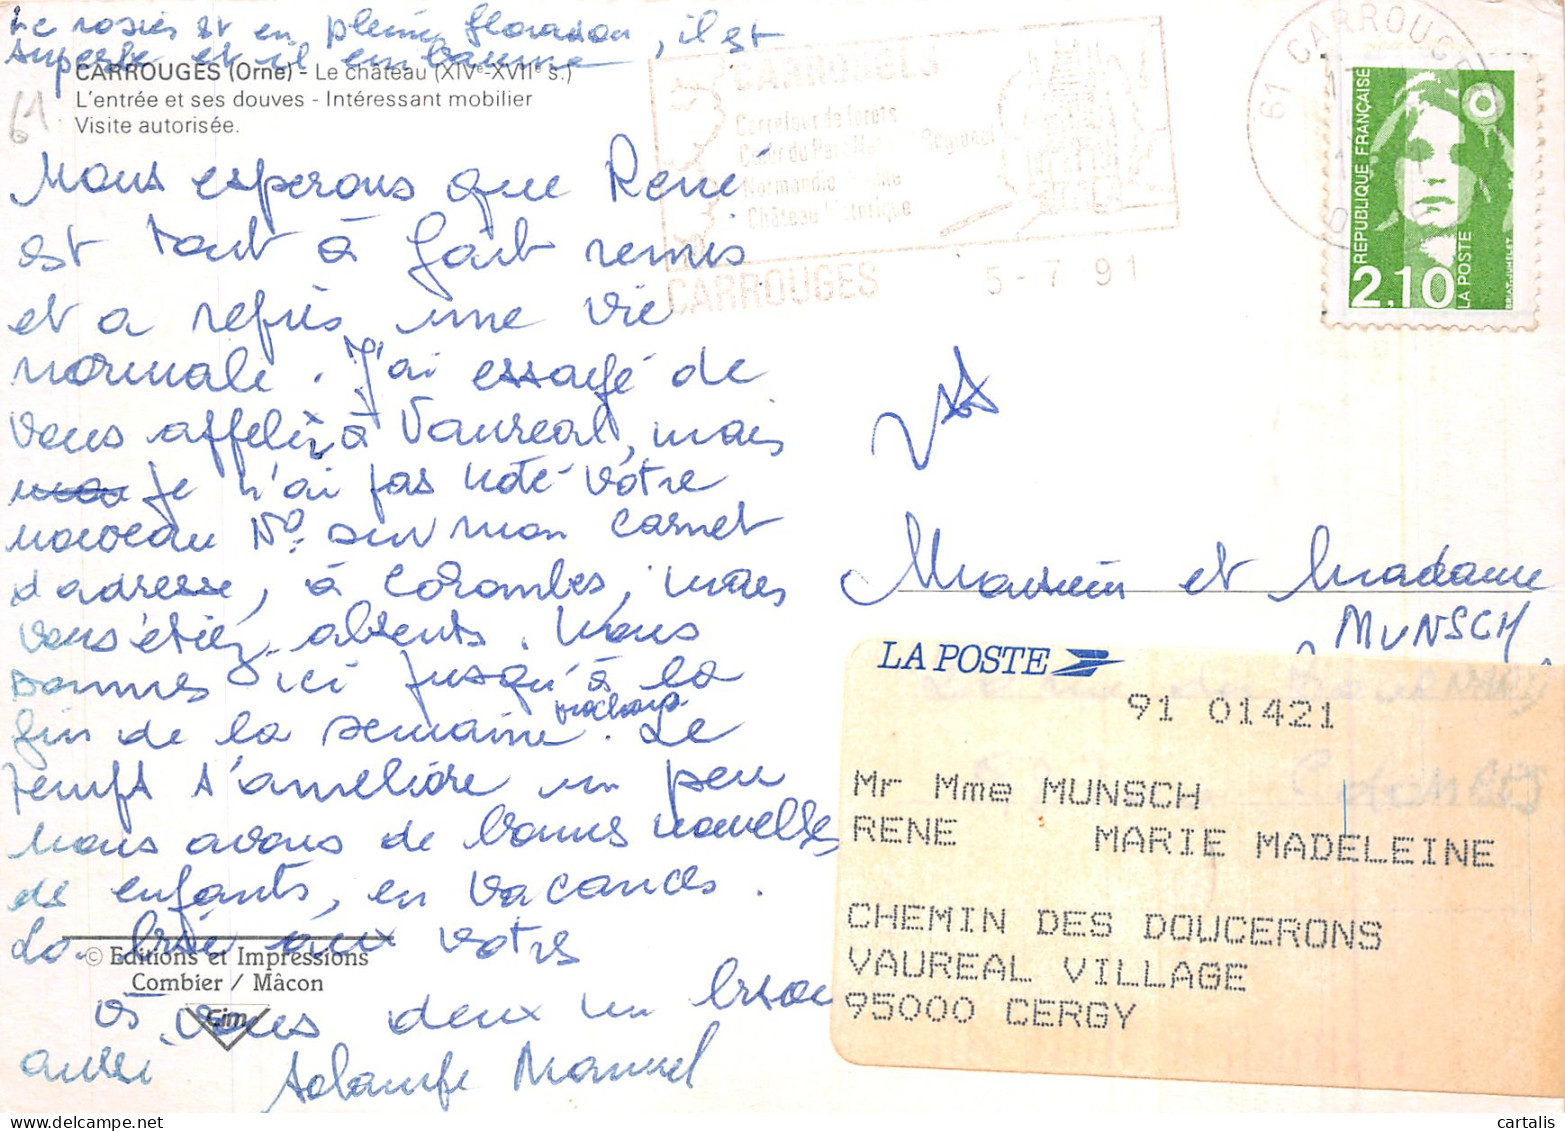 Le rosier est en pleine floraison, il est
superbe et il embaume
CARROUGES (Orne) - Le château (XIVe-XVIIe s.)
L'entrée et ses douves - Intéressant mobilier
Visite autorisée.
61
Nous esperons que René
est tout à fait remis
et a repris une vie
normale. J'ai essayé de
vous appeler à Vauréal, mais
je n'ai pas noté votre
nouveau N° sur mon carnet
d'adresse, à Colombes, mais
vous étiez absents. Nous
sommes ici jusqu'à la
fin de la semaine prochaine. Le
temps s'améliore un peu
Nous avons de bonnes nouvelles
des enfants, en vacances.
La
aux votres
© Editions et Impressions
Combier / Mâcon
cim
à vous deux un
aussi
Solange Manuel
CARROUGES
Carrefour de forêts
Cœur du Parc Régional
Normandie Maine
Château historique
CARROUGES
5-7 91
61 CARROUGES
RÉPUBLIQUE FRANÇAISE
2,10
LA POSTE
BRIAT-JUMELET
Monsieur et Madame
MUNSCH
LA POSTE
91 01421
Mr Mme MUNSCH
RENE MARIE MADELEINE
CHEMIN DES DOUCERONS
VAUREAL VILLAGE
95000 CERGY
delcampe.net
cartalis